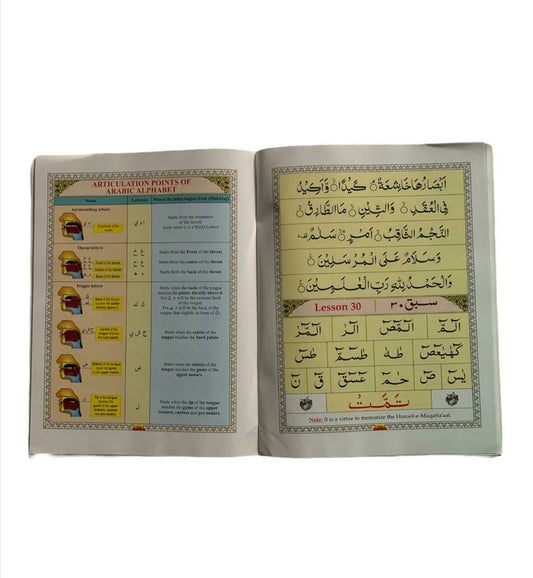 ARTICULATION POINTS OF
ARABIC ALPHABET
Name
Letters
Where the letter begins from (Makhraj)
Air/stretching letters
Emptiness of the mouth
ا و ي
Starts from the emptiness
of the mouth
(only when it is a Madd Letter)
Throat letters
Front of the throat
Centre of the throat
Back of the throat
غ خ
Starts from the Front of the throat
ع ح
Starts from the centre of the throat
ء ه
Starts from the back of the throat
Tongue letters
Back of the
tongue touches
the palate
ق ك
Starts when the back of the tongue
touches the palate directly above it
For ق, it will be the extreme back
of the tongue
For ك, it will be the back of the
tongue (but slightly in front of ق)
Centre of the
tongue touches
the hard palate
ج ش ي
Starts when the centre of the
tongue touches the hard palate
ض
Starts when the side(s) of the
tongue touches the gums of the
upper molars
ل
Starts when the tip of the tongue
touches the gums of the upper
incisors, canines and pre-molars
اَبْصَارُهَا خَاشِعَةٌ ۝ كَيْدًا ۝ وَّاَكِيْدُ
فِى الْعُقَدِ ۝ وَالتِّيْنِ ۝ مَا الطَّارِقُ ۝
النَّجْمُ الثَّاقِبُ ۝ اَمْرٍ ۝ سَلٰمٌ
وَسَلَامٌ عَلَى الْمُرْسَلِيْنَ ۝
وَالْحَمْدُ لِلّٰهِ رَبِّ الْعٰلَمِيْنَ ۝
Lesson 30 سبق ۳۰
الٓمّٓ الٓمّٓصٓ الٓرٰ الٓمّٓرٰ
كٓهٰيٰعٓصٓ طٰهٰ طٰسٓمّٓ طٰسٓ
يٰسٓ صٓ حٰمٓ عٓسٓقٓ قٓ نٓ
تَمَّتْ
Note: It is a virtue to memorize the Huroof-e-Muqatta'aat.